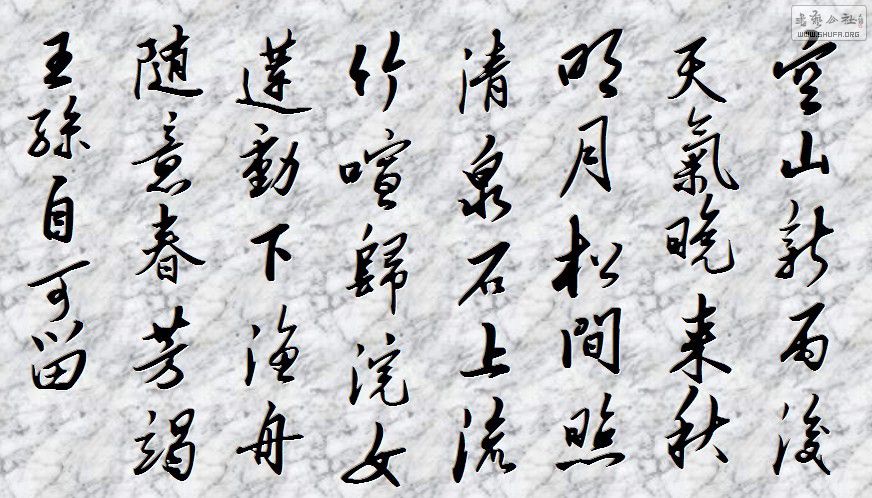 空山新雨後
天氣晚来秋
明月松間照
清泉石上流
竹喧歸浣女
蓮動下漁舟
随意春芳竭
王孫自可留
書藝公社
WWW.SHUFA.ORG